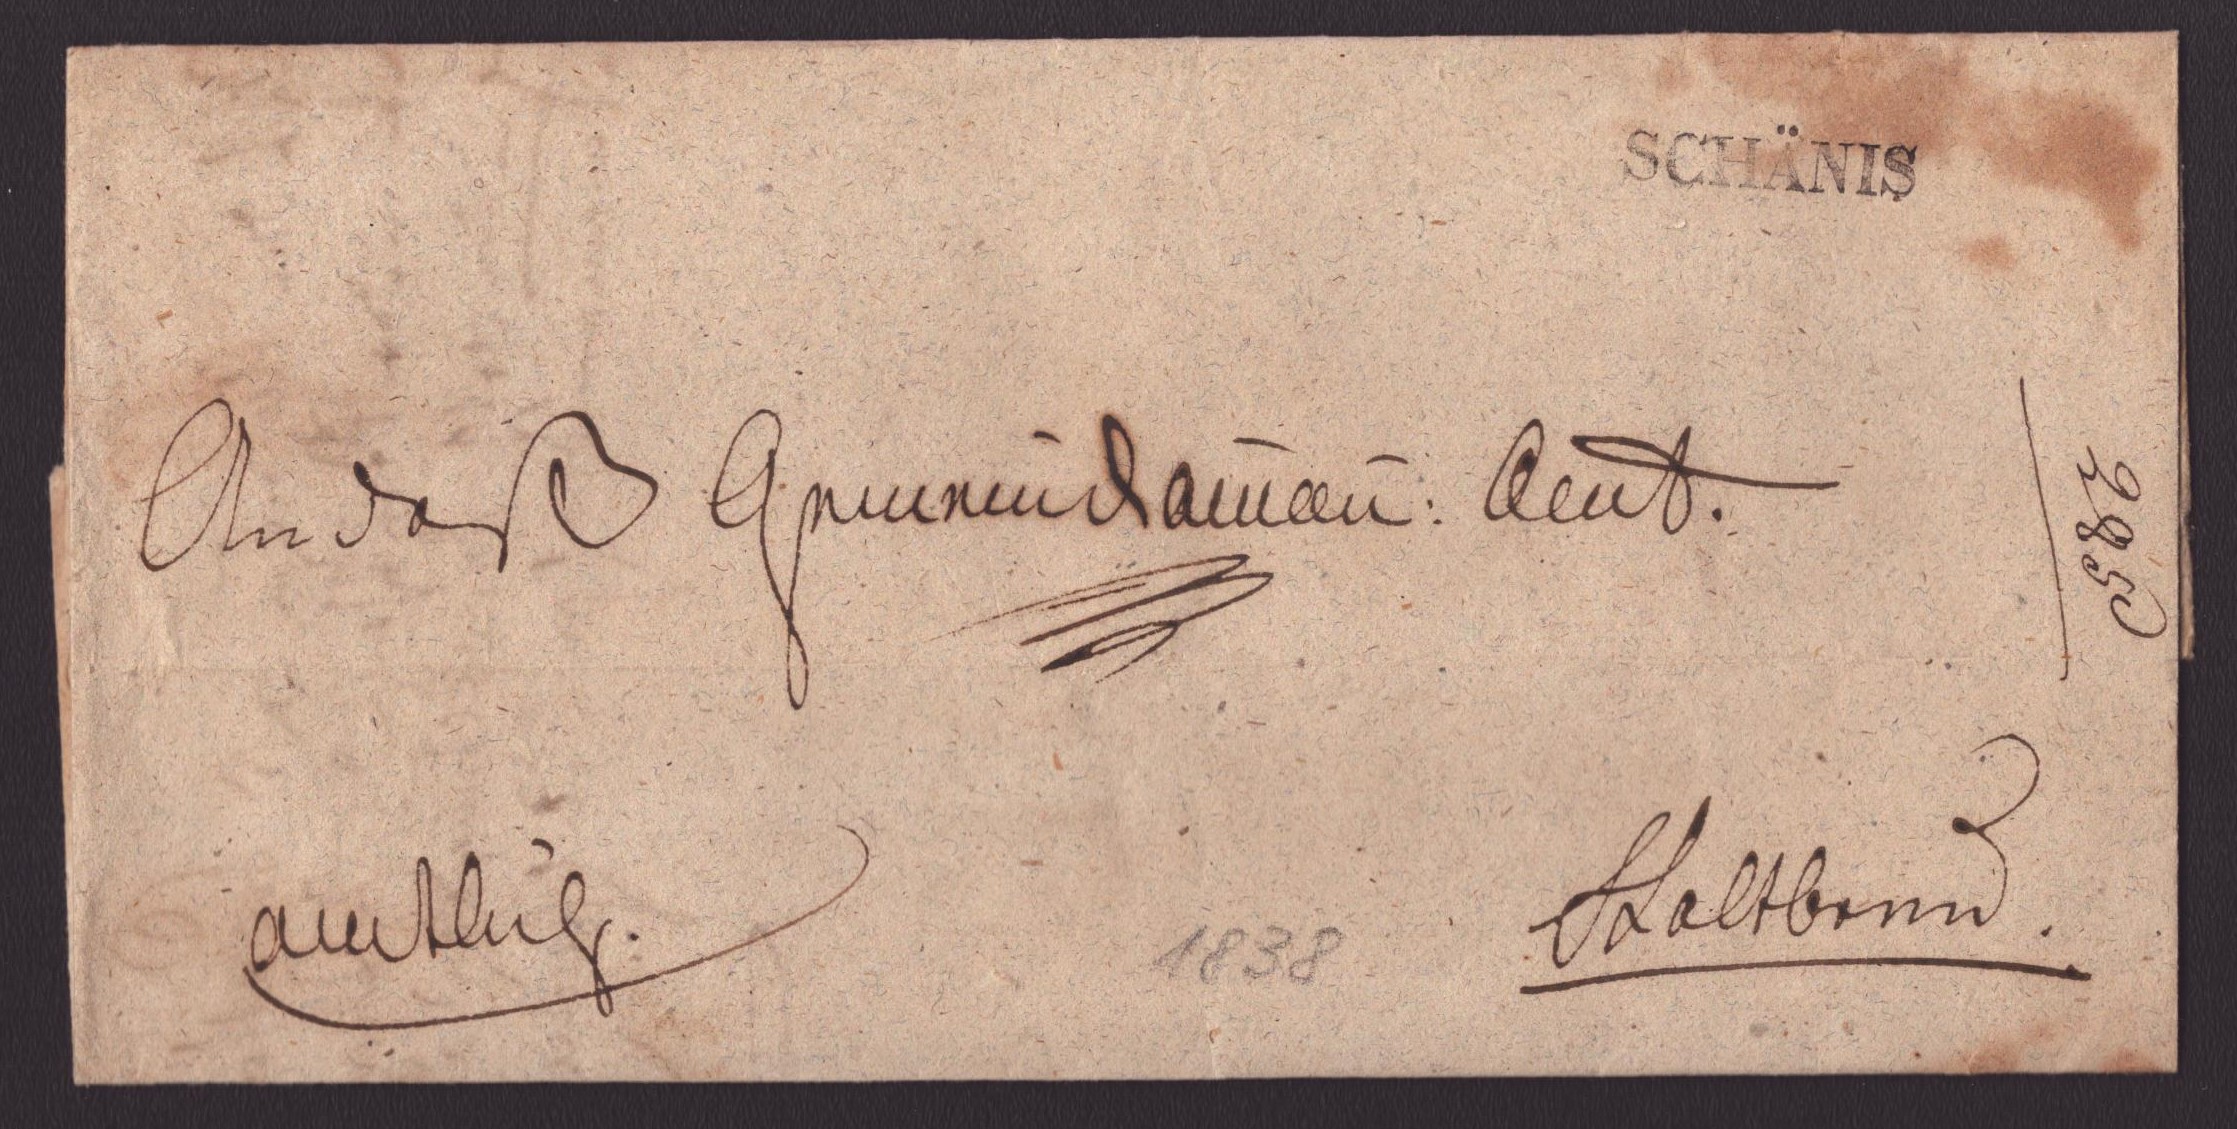 SCHÄNIS
An das Gemeindamañ: Amt.
285
amtlich.
1838
Kaltbrunn.